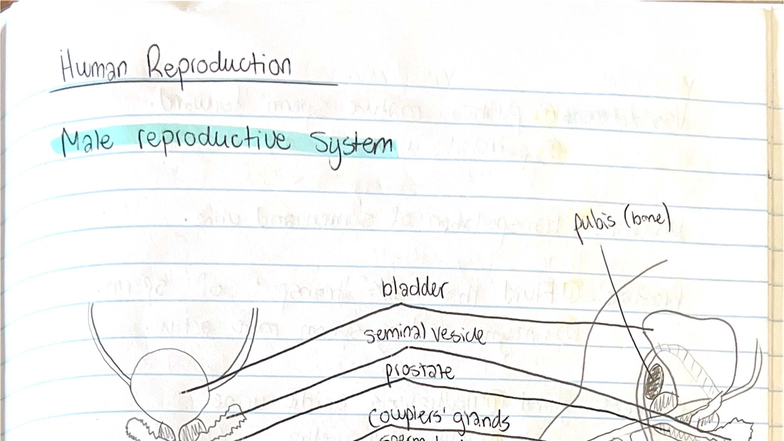 Human Reproduction
Male reproductive System
pubis (bone)
bladder
seminal vesicle
prostate